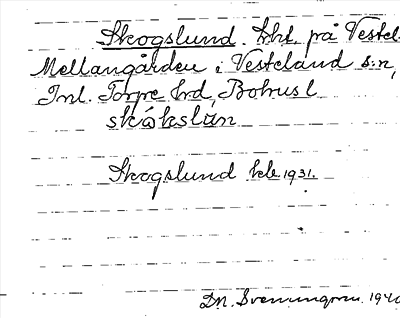 Skogslund. tht. på Vestel.
Mellangården i Vesteland s:n,
Inl. Torpe hrd, Bohusl
skåkslan
Skogslund hek. 1931.
DN. Svenningson. 1940